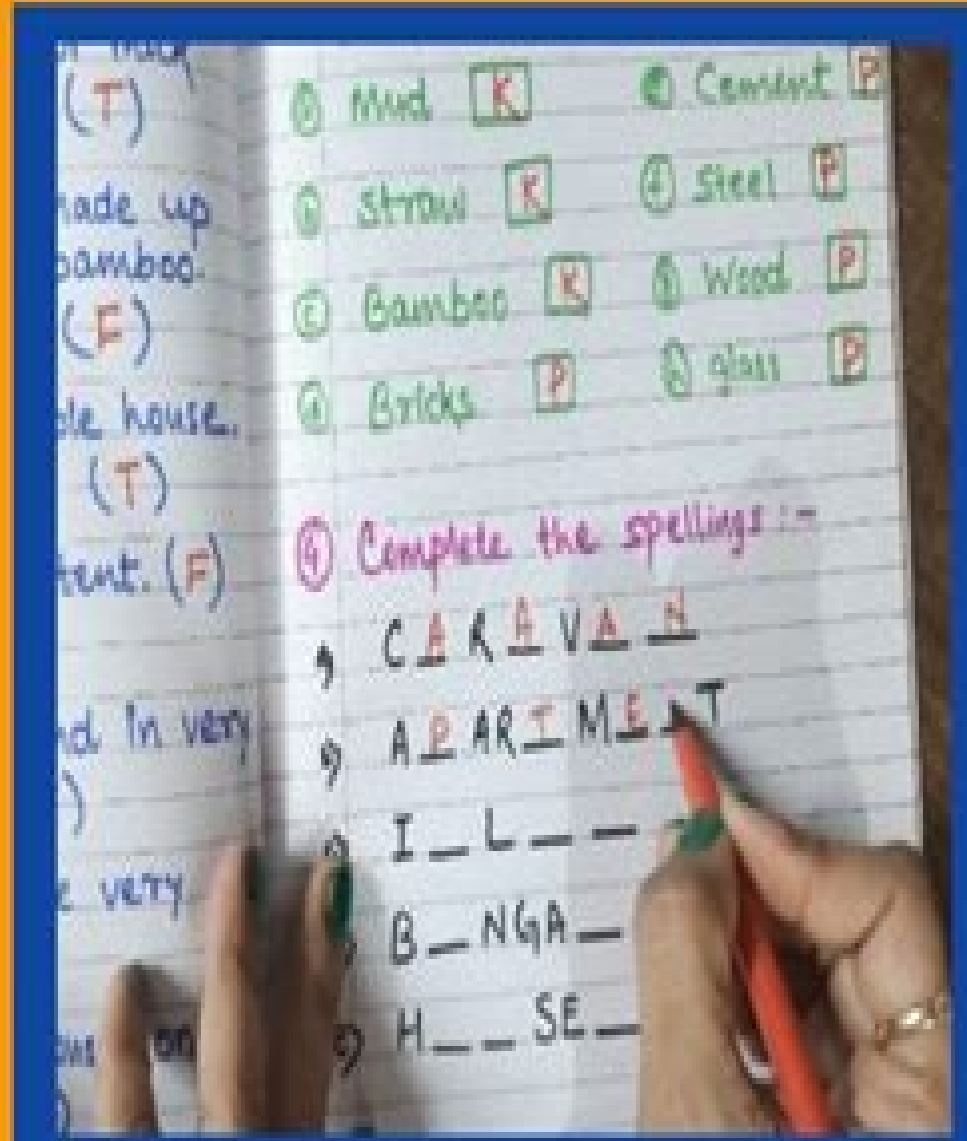 (T)
ade up
bamboo.
(F)
ble house.
(T)
tent. (F)
nd In very
)
e very
on
a) Mud K
e) Cement P
b) Straw K
f) Steel P
c) Bamboo K
g) Wood P
d) Bricks P
h) glass P
Complete the spellings :-
C A R A V A N
A P A R T M E _ T
I _ L _ _
B _ N G A _
H _ _ S E _